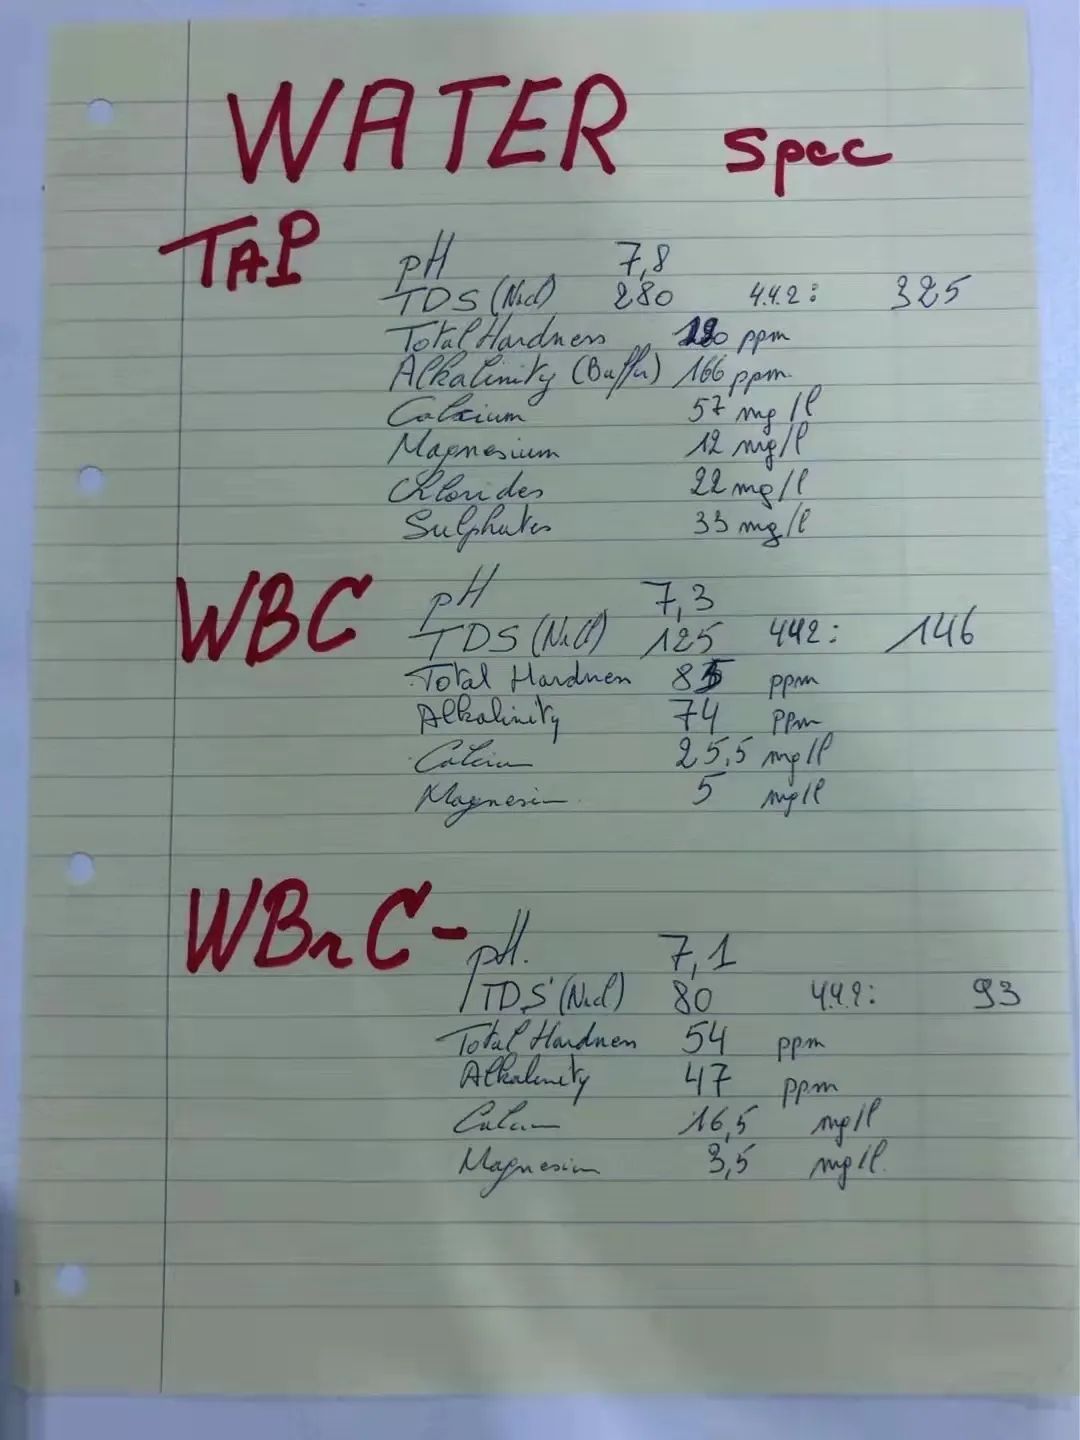 WATER Spec
TAP
pH 7,8
TDS (NaCl) 280 4.4.2: 325
Total Hardness ppm
Alkalinity (Buffer) 166 ppm.
Calcium 57 mg/l
Magnesium 12 mg/l
Chlorides 22 mg/l
Sulphates 33 mg/l
WBC
pH 7,3
TDS (NaCl) 125 442: 146
Total Hardness 85 ppm
Alkalinity 74 ppm
Calcium 25,5 mg/l
Magnesium 5 mg/l
WBrC-
pH. 7,1
TDS (NaCl) 80 442: 93
Total Hardness 54 ppm
Alkalinity 47 ppm
Calcium 16,5 mg/l
Magnesium 3,5 mg/l.